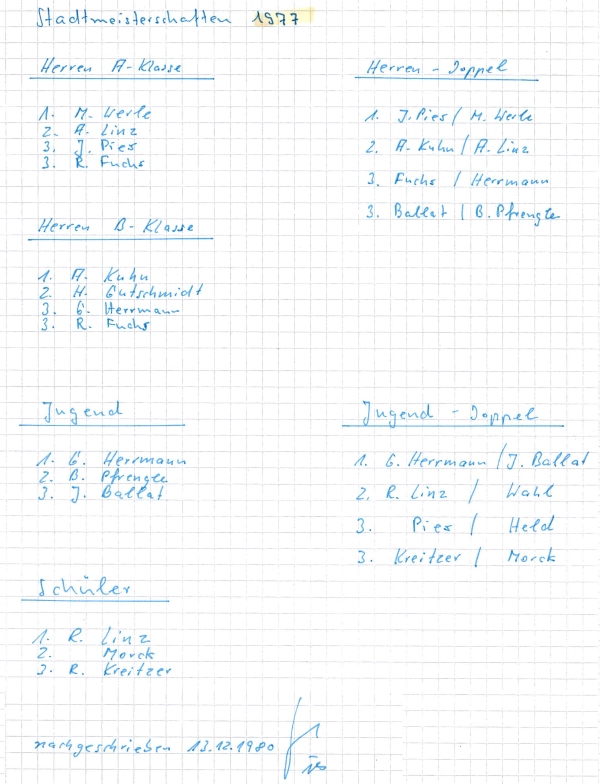 Stadtmeisterschaften 1977
Herren A-Klasse
1. M. Werle
2. A. Linz
3. J. Pies
3. R. Fuchs
Herren - Doppel
1. J. Pies / M. Werle
2. A. Kuhn / A. Linz
3. Fuchs / Herrmann
3. Ballat / B. Pfrengle
Herren B-Klasse
1. A. Kuhn
2. H. Gutschmidt
3. G. Herrmann
3. R. Fuchs
Jugend
1. G. Herrmann
2. B. Pfrengle
3. J. Ballat
Jugend - Doppel
1. G. Herrmann / J. Ballat
2. R. Linz / Wahl
3. Pies / Held
3. Kreitzer / Morck
Schüler
1. R. Linz
2. Morck
3. R. Kreitzer
nachgeschrieben 13.12.1980